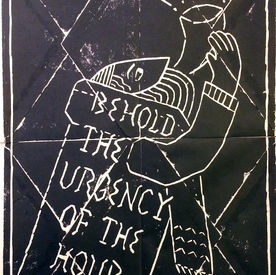 BEHOLD
THE
URGENCY
OF THE
HOUR